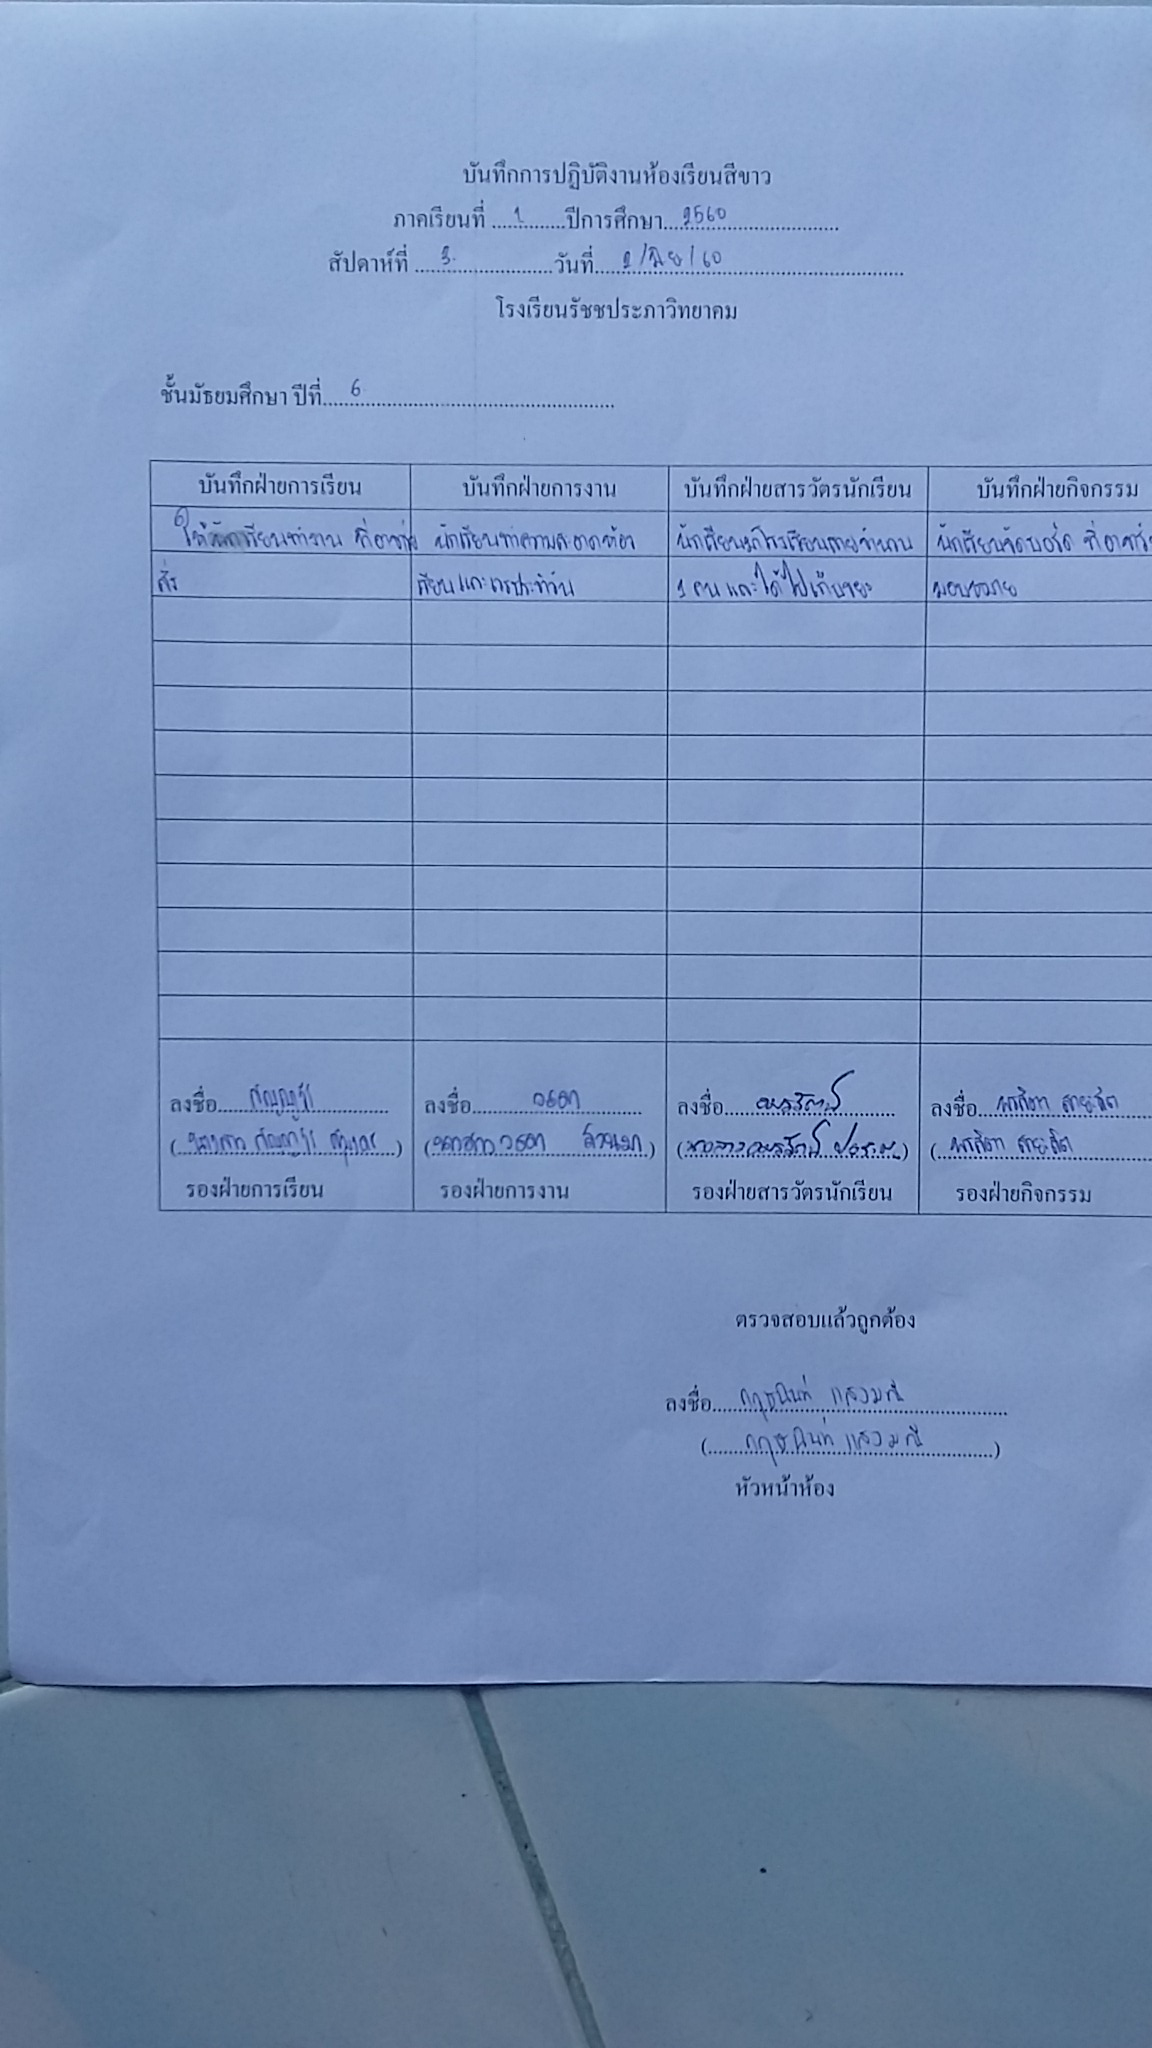 บันทึกการปฏิบัติงานห้องเรียนสีขาว
ภาคเรียนที่ 1 ปีการศึกษา 2560
สัปดาห์ที่ 3 วันที่ 2/มิย/60
โรงเรียนรัชชประภาวิทยาคม
ชั้นมัธยมศึกษา ปีที่ 6
บันทึกฝ่ายการเรียน บันทึกฝ่ายการงาน บันทึกฝ่ายสารวัตรนักเรียน บันทึกฝ่ายกิจกรรม
ให้นักเรียนทำงาน ที่อาจารย์ นักเรียนทำความสะอาดห้อง นักเรียนมาโรงเรียนสายจำนวน นักเรียนจัดบอร์ด ที่อาจารย์
สั่ง เรียนและเวรประจำวัน 1 คน และได้ไปเก็บขยะ มอบหมาย
ลงชื่อ ลงชื่อ ลงชื่อ ลงชื่อ
(นางสาว ) (นางสาว ) (นางสาว ) (
รองฝ่ายการเรียน รองฝ่ายการงาน รองฝ่ายสารวัตรนักเรียน รองฝ่ายกิจกรรม
ตรวจสอบแล้วถูกต้อง
ลงชื่อ แสงมณี
( แสงมณี )
หัวหน้าห้อง